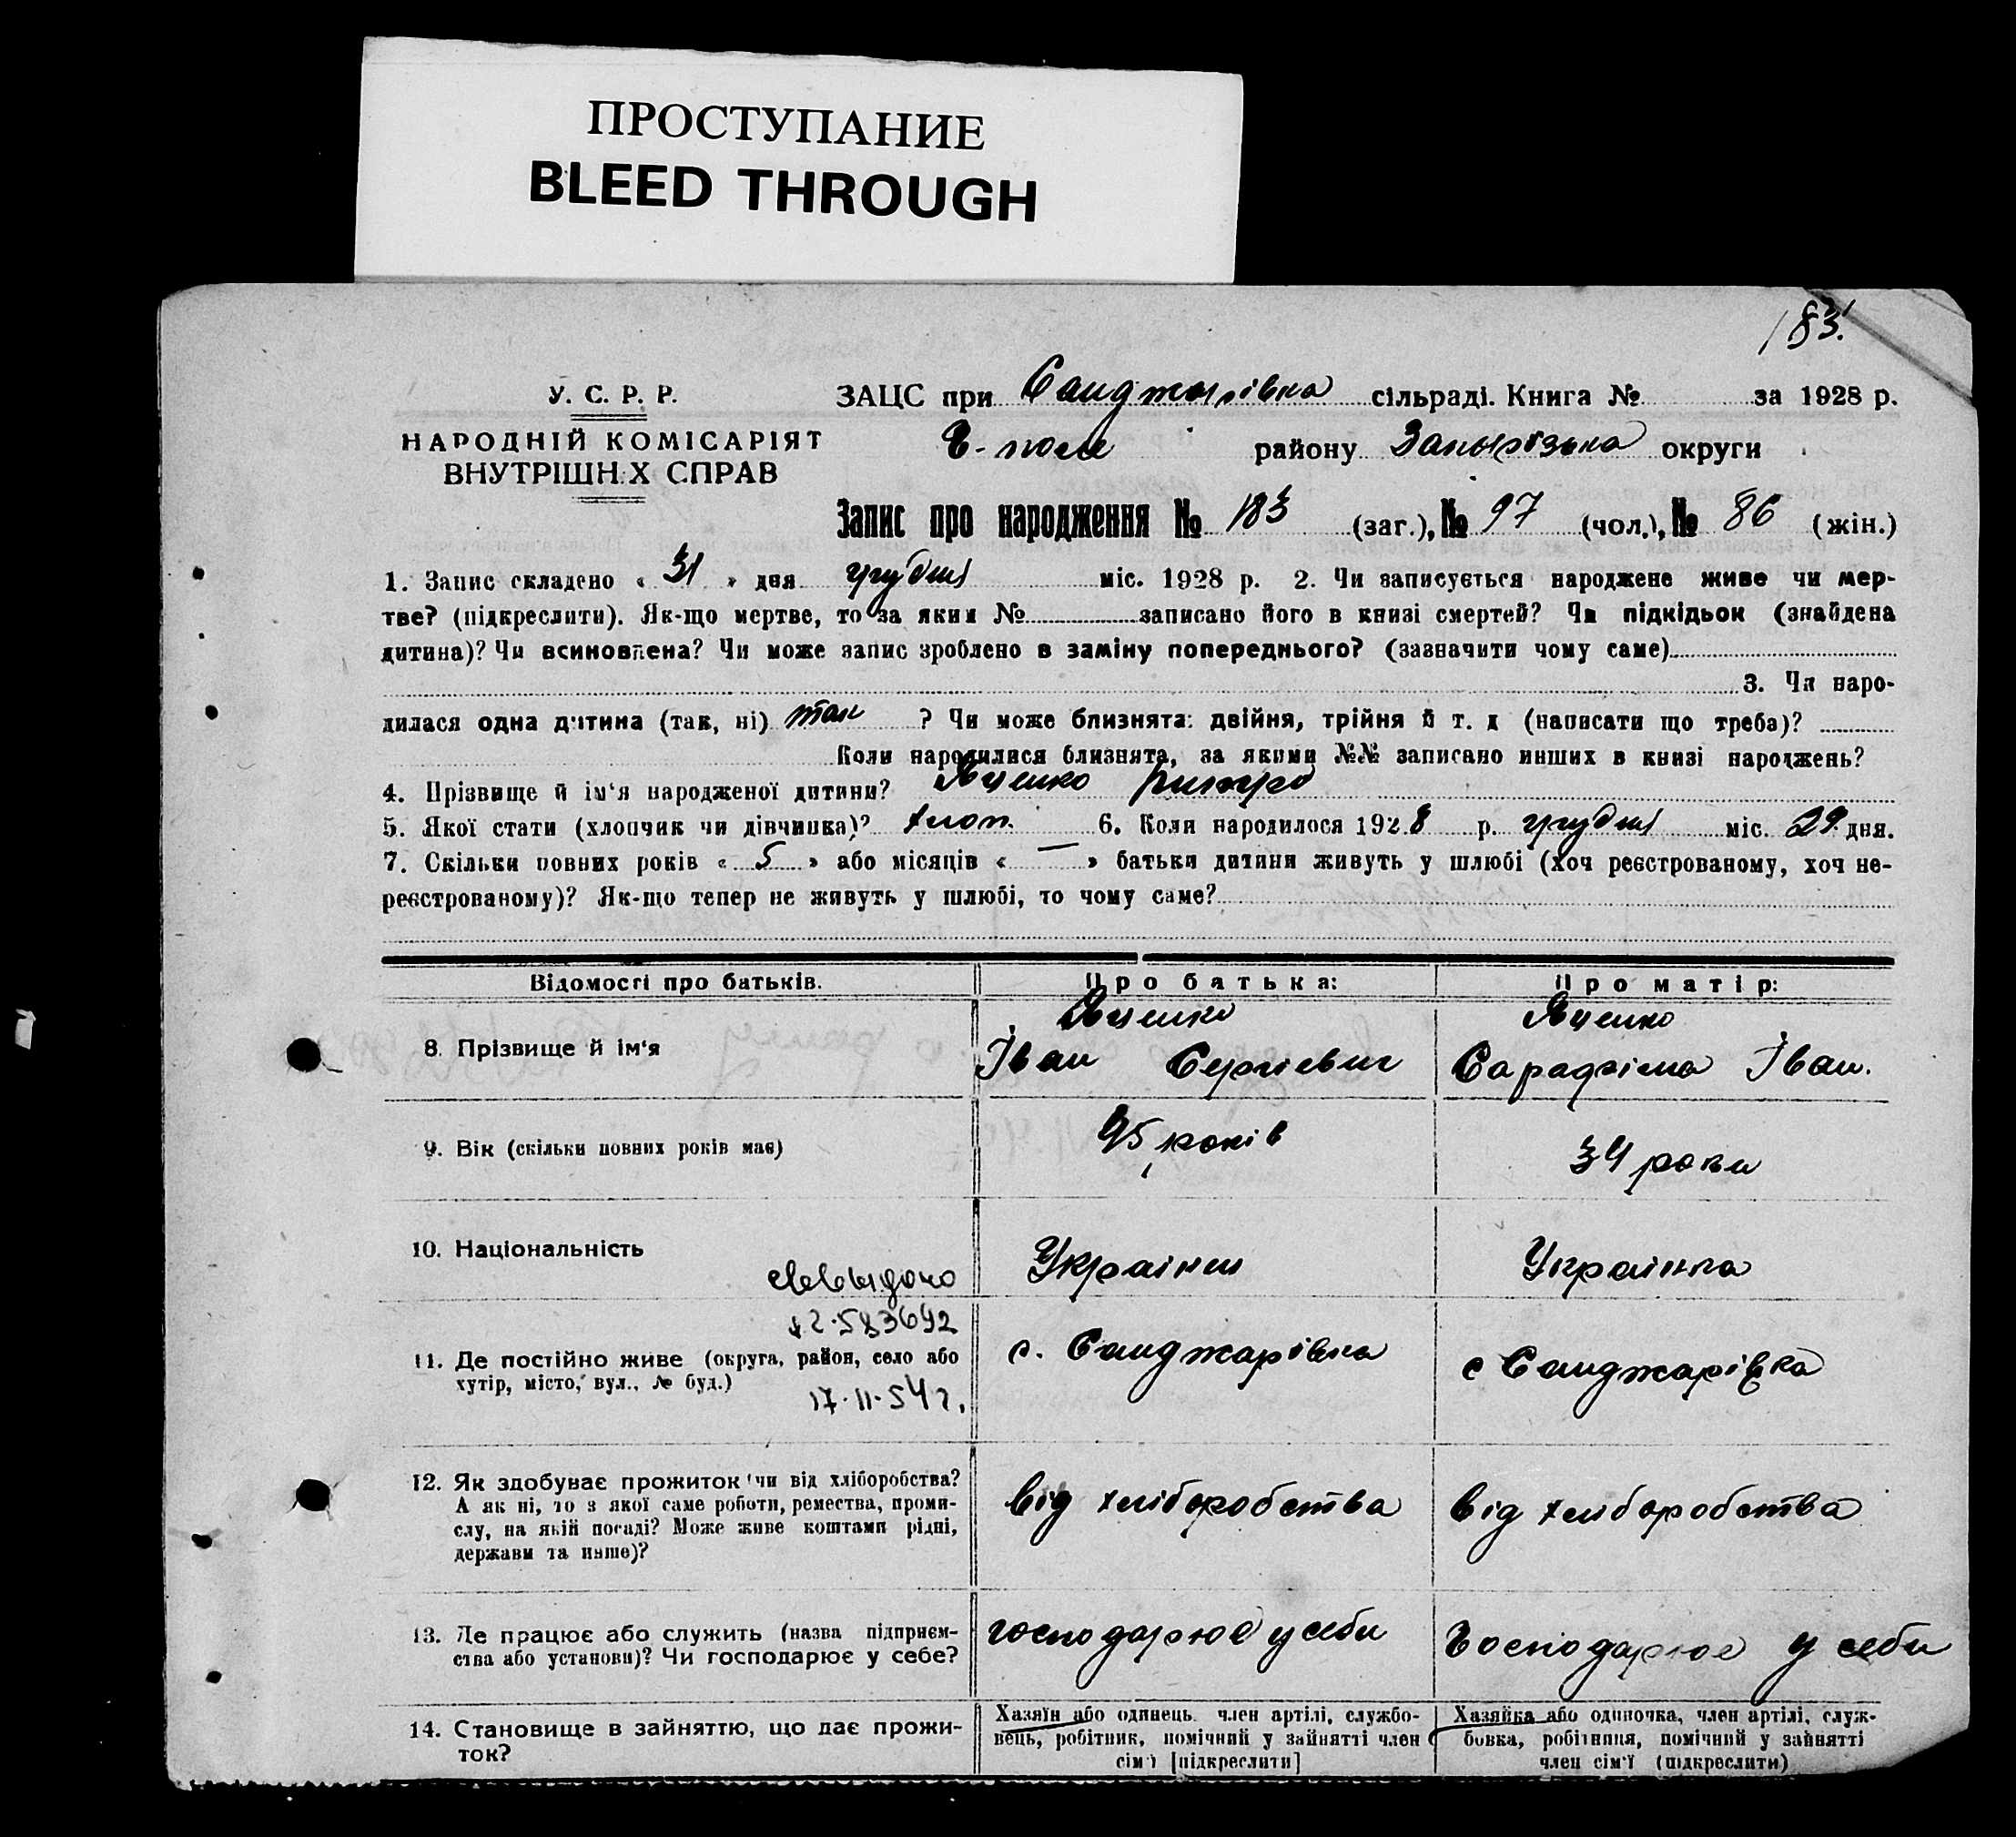 ПРОСТУПАНИЕ
BLEED THROUGH
183.
У. С. Р. Р.
НАРОДНІЙ КОМІСАРІЯТ
ВНУТРІШНІХ СПРАВ
ЗАЦС при Санджарівка сільраді. Книга № за 1928 р.
району Запорізька округи
Запис про народження № 183 (заг.), № 97 (чол.), № 86 (жін.)
1. Запис складено « 31 » дня грудня міс. 1928 р. 2. Чи записується народжене живе чи мер-
тве? (підкреслити). Як-що мертве, то за яким № записано його в книзі смертей? Чи підкідьок (знайдена
дитина)? Чи всиновлена? Чи може запис зроблено в заміну попереднього? (зазначити чому саме)
3. Чи наро-
дилася одна дитина (так, ні) так ? Чи може близнята: двійня, трійня й т. д (написати що треба)?
Коли народилися близнята, за якими №№ записано инших в книзі народжень?
4. Прізвище й ім'я народженої дитини? Яценко
5. Якої стати (хлопчик чи дівчинка)? хлоп. 6. Коли народилося 1928 р. грудня міс. 29 дня.
7. Скільки повних років « 5 » або місяців « — » батьки дитини живуть у шлюбі (хоч реєстрованому, хоч не-
реєстрованому)? Як-що тепер не живуть у шлюбі, то чому саме?
Відомості про батьків. Про батька: Про матір:
8. Прізвище й ім'я
Яценко
Іван Сергієвич
Яценко
Іван.
9. Вік (скільки повних років має)
45 років
34 роки
10. Національність
Українец
Українка
11. Де постійно живе (округа, район, село або
хутір, місто, вул., № буд.)
583642
17.11.54 г.
с. Санджарівка
с Санджарівка
12. Як здобуває прожиток чи від хліборобства?
А як ні, то з якої саме роботи, ремества, проми-
слу, на якій посаді? Може живе коштами рідні,
держави та инше)?
від хліборобства
від хліборобства
13. Де працює або служить (назва підприєм-
ства або установи)? Чи господарює у себе?
господарює у себи
господарює у себи
14. Становище в зайняттю, що дає прожи-
ток?
Хазяїн або одинець член артілі, службо-
вець, робітник, помічний у зайнятті член
сім'ї [підкреслити]
Хазяйка або одиночка, член артілі, служ-
бовка, робітниця, помічний у зайнятті
член сім'ї (підкреслити)